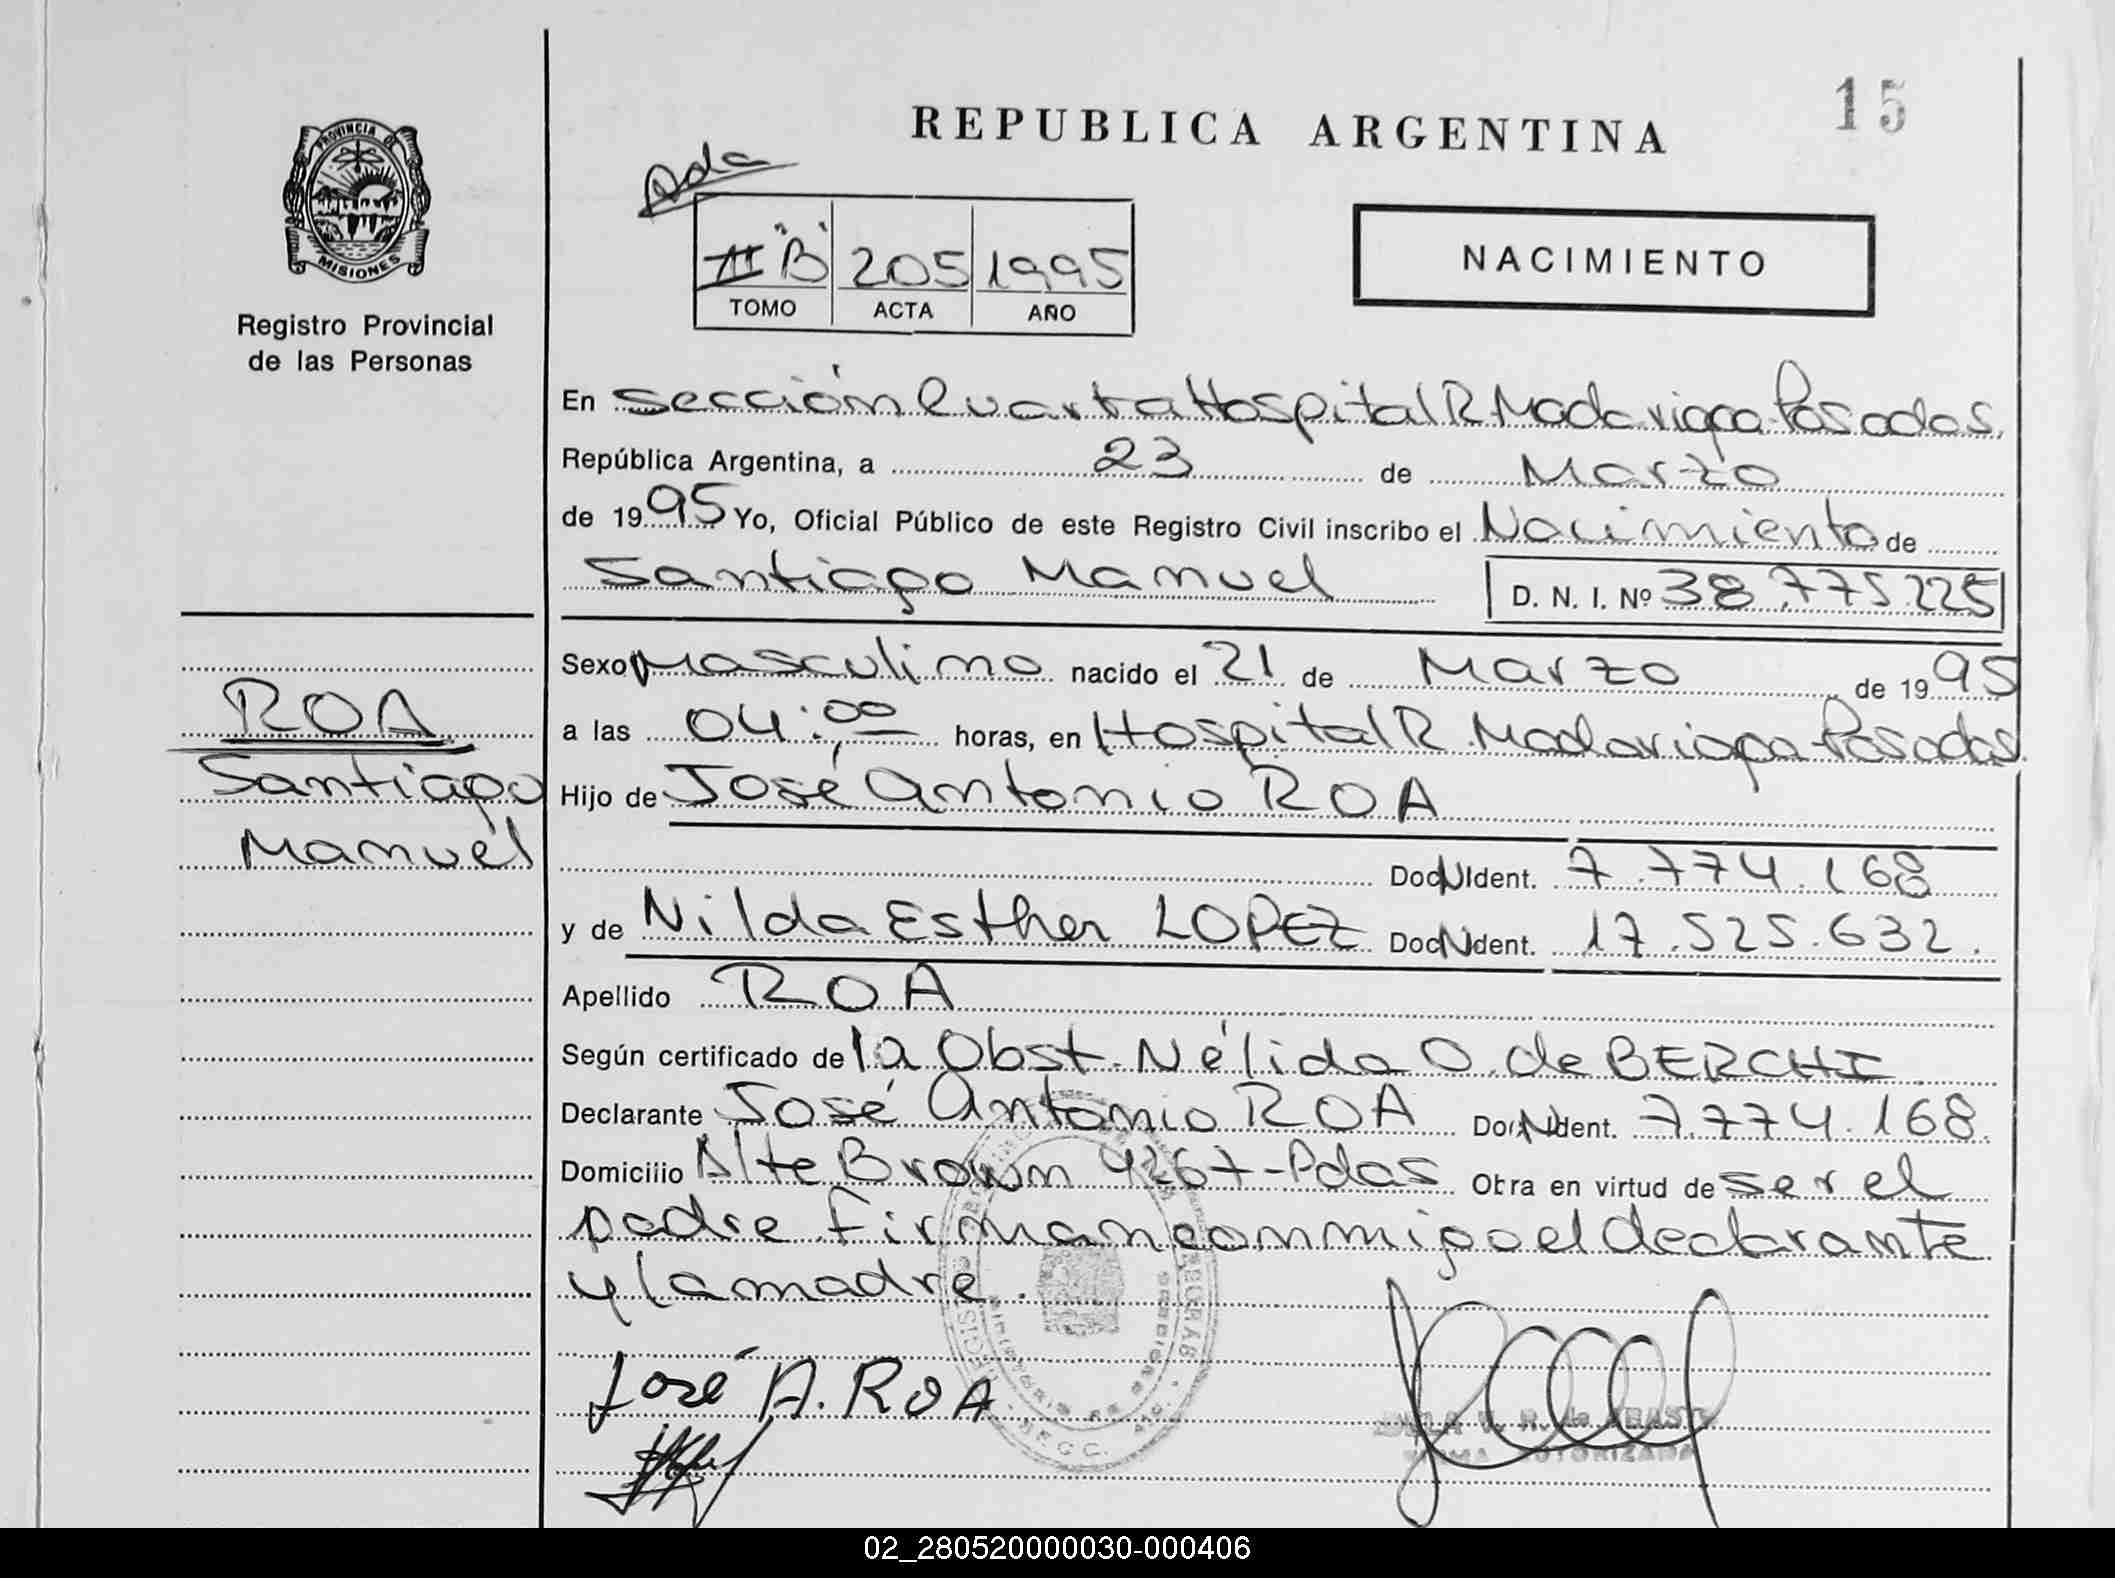 15
REPUBLICA ARGENTINA
PROVINCIA DE
MISIONES
Registro Provincial
de las Personas
Ada
III "B" 205 1995
TOMO ACTA AÑO
NACIMIENTO
En sección Cuarta Hospital R Madariaga-Posadas.
República Argentina, a 23 de Marzo
de 1995 Yo, Oficial Público de este Registro Civil inscribo el Nacimiento de
Santiago Manuel D. N. I. Nº 38.775.225
Sexo Masculino nacido el 21 de Marzo de 1995
a las 04:00 horas, en Hospital R. Madariaga-Posadas.
Hijo de José Antonio ROA
Doc. N Ident. 7.774.168
y de Nilda Esther LOPEZ Doc. N Ident. 17.525.632.
Apellido ROA
Según certificado de la Obst. Nélida O. de BERCHI
Declarante José Antonio ROA Doc. N Ident. 7.774.168.
Domicilio Alte Brown 4267-Pdas Obra en virtud de ser el
padre. firman conmigo el declarante
y la madre.
ROA
Santiago
Manuel
José A. ROA
FIRMA AUTORIZADA
02_280520000030-000406